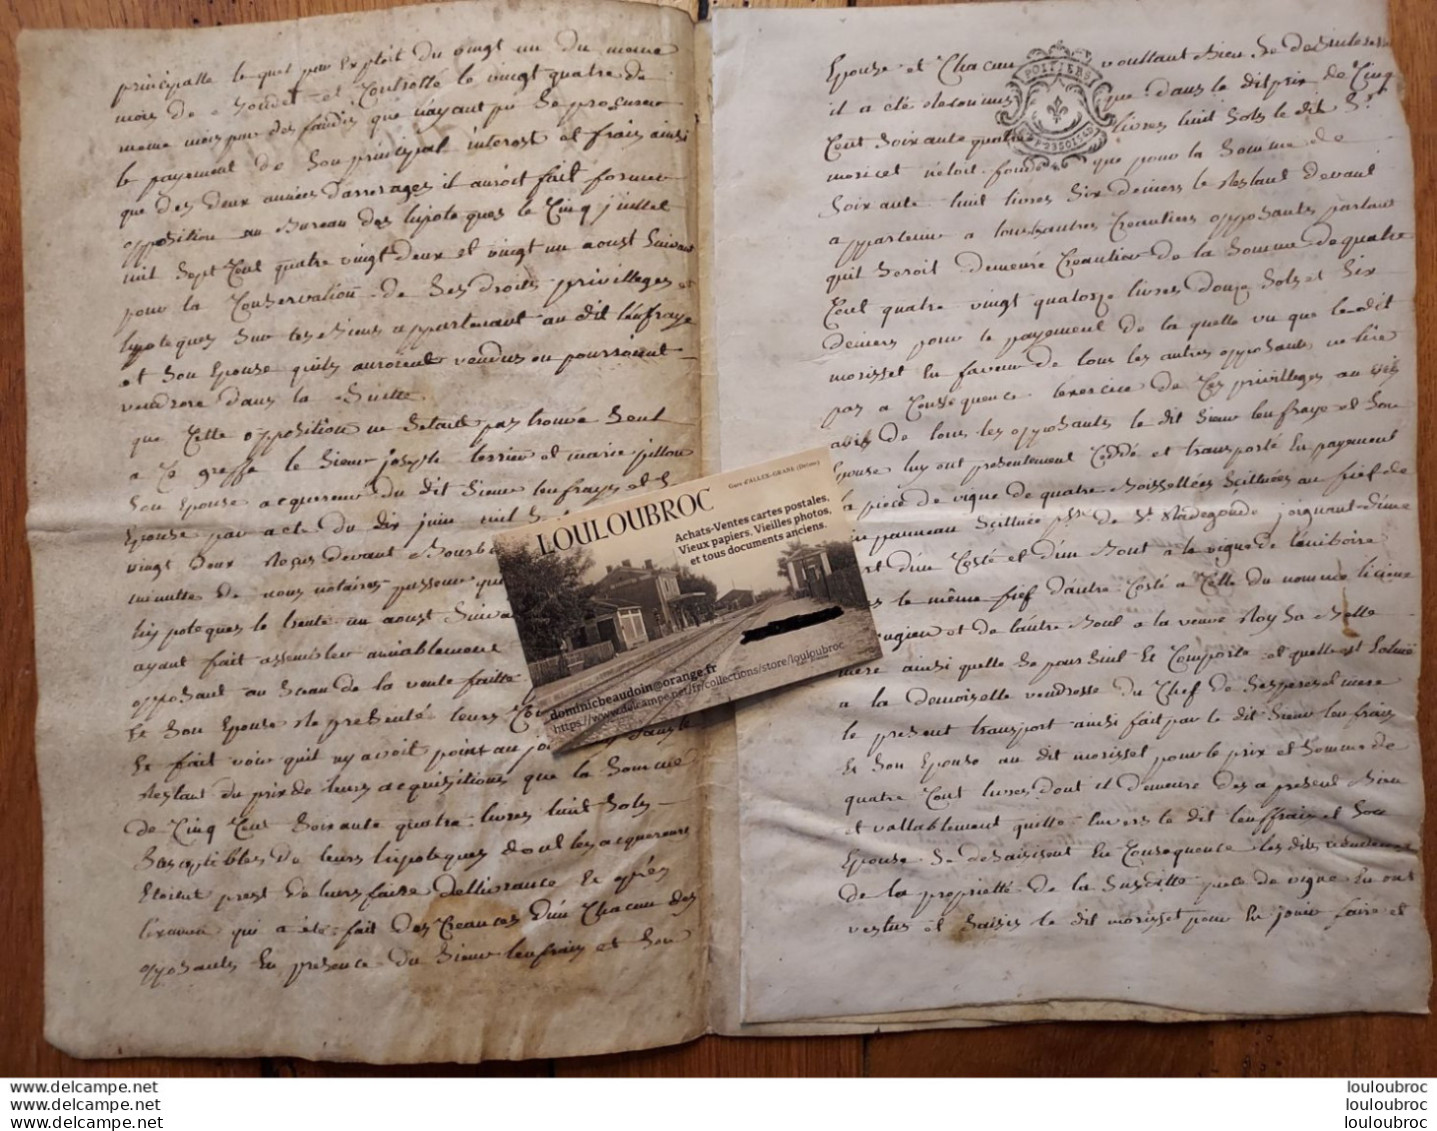 principalle le quel par Exploit du vingt un du meme
mois de et Controllé le vingt quatre de
meme mois pour des faudis que n'ayant pû Se procurer
le payement de Son principal interest et frais ainsi
que des deux années D'arrerages il auroit fait former
opposition au Bureau des hipoteques le Cinq juillet
mil Sept Cent quatre vingt deux et vingt un aoust Suivant
pour la Conservation de Ses droits privilleges et
hipoteques Sur les Biens appartenant au dit leufraye
et Son Epouse quils auroient vendus ou pourroient
vendrere dans la Suitte
que Cette opposition ne Setant pas trouvée Seul
a Ce greffe le Sieur joseph terrien et marie pillon
Son Epouse acquereur du dit Sieur leufraye et S
Epouse par acte du dix juin mil
vingt Deux Reçus devant Bourbe
minutte de nous notaires passeur que
hipoteques le trente un aoust Suiva
ayant fait assembler amiablement
opposant au Sceau de la vente faitte
Et Son Epouse Represénté leurs Con
Et fait voir quil ny avoit point au jo
Restant du prix de leurs acquisitions que la Somme
de Cinq Cent Soixante quatre livres huit Sols
Sasceptibles de leurs hipoteques dont les acquereurs
Etoient prest de leurs faire dellivrance Et après
l'examen qui a été fait des Creances D'un Chacun des
opposants En presence du Sieur leufrais et Son
Epouse et Chacun voullant Bien Se desinteresser
il a été Reconnus que dans le dit prix de Cinq
Cent Soixante quatre livres huit Sols le dit Sr
moricet n'etoit fondé que pour la Somme de
Soixante huit livres Six deniers le Restant devant
appartenir a tous autres Creantiers opposants partant
quil Seroit demeuré Creantier de la Somme de quatre
Cent quatre vingt quatorze livres douze Sols et Six
deniers pour le payement de la quelle vu que le dit
morisset En faveur de tous les autres opposants ne tire
pas a Consequence lexercice de Ces privilleges au vis
avis de tous les opposants le dit Sieur leufraye et Son
Epouse luy ont présentement Ceddé et transporté En payement
la piece de vigne de quatre Boissellées Scittuées au fief de
panneau Scittuée psse de St Radegonde joignant d'une
rt d'un Costé et d'un Bout a la vigne de
le même fief d'autre Costé a Celle du nommé
et de l'autre Bout a la veuve Roy Sa Belle
mere ainsi quelle Se poursuit Et Comporte et quelle est Eschue
a la Demoiselle vendresse du Chef de Ses pere et mere
le present transport ainsi fait par le dit Sieur leufrais
Et Son Epouse au dit morisset pour le prix et Somme de
quatre Cent livres dont il demeure des a present Bien
et vallablement quitte Envers le dit leuffrais et Son
Epouse Se desaisisent En Consequence les dits vendeurs
de la proprietté de la Susditte piece de vigne En ont
vestus et Saisis le dit morisset pour En jouir faire et
POITIERS
LOULOUBROC
Gare d'ALLEX-GRANE (Drôme)
Achats-Ventes cartes postales,
Vieux papiers, Vieilles photos,
et tous documents anciens.
dominicbeaudoin@orange.fr
https://www.delcampe.net/fr/collections/store/louloubroc
delcampe.net
louloubroc
delcampe.net
louloubroc
delcampe.net
louloubroc